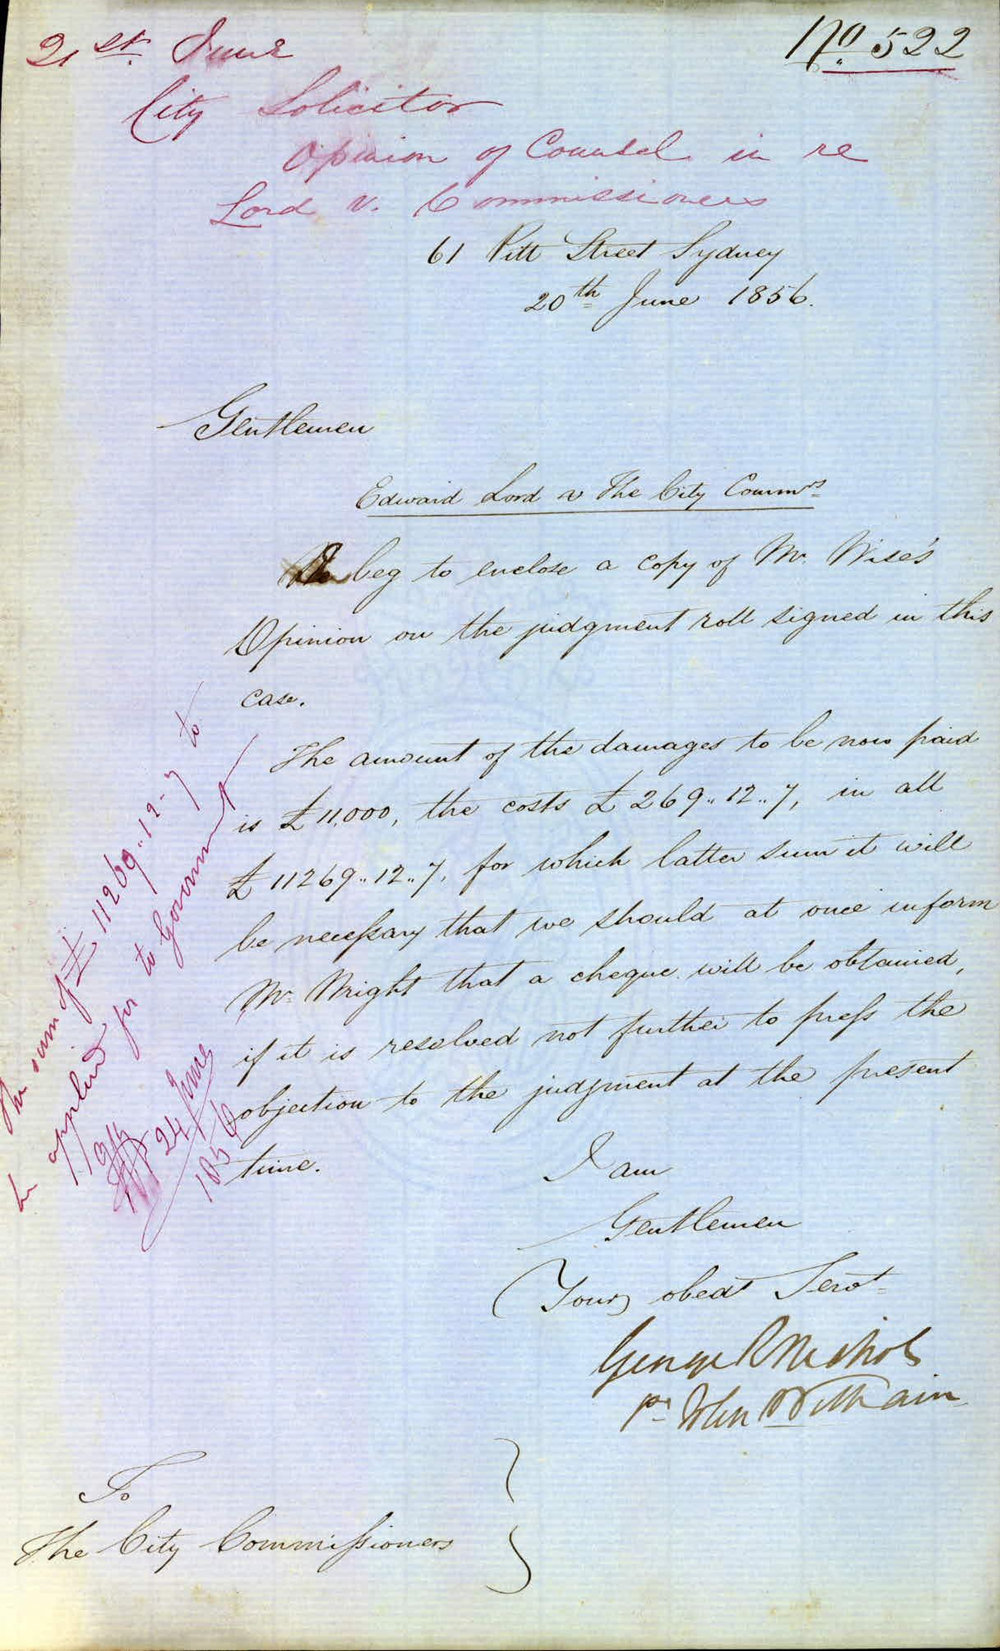 21st. June
No. 522
City Solicitor
Opinion of Counsel in re
Lord v. Commissioners
61 Pitt Street Sydney
20th June 1856.
Gentlemen
Edward Lord v The City Commrs
I beg to enclose a copy of Mr. Wise's
Opinion on the judgment roll signed in this
case.
The amount of the damages to be now paid
is £11,000, the costs £269..12..7, in all
£11269..12..7, for which latter sum it will
be necessary that we should at once inform
Mr. Wright that a cheque will be obtained,
if it is resolved not further to press the
objection to the judgment at the present
time.
The sum of £11269..12-7 to
be applied for to Government
24 June
1856
I am
Gentlemen
Your obedt Servt
George R Nichols
pr John Williams
To
The City Commissioners